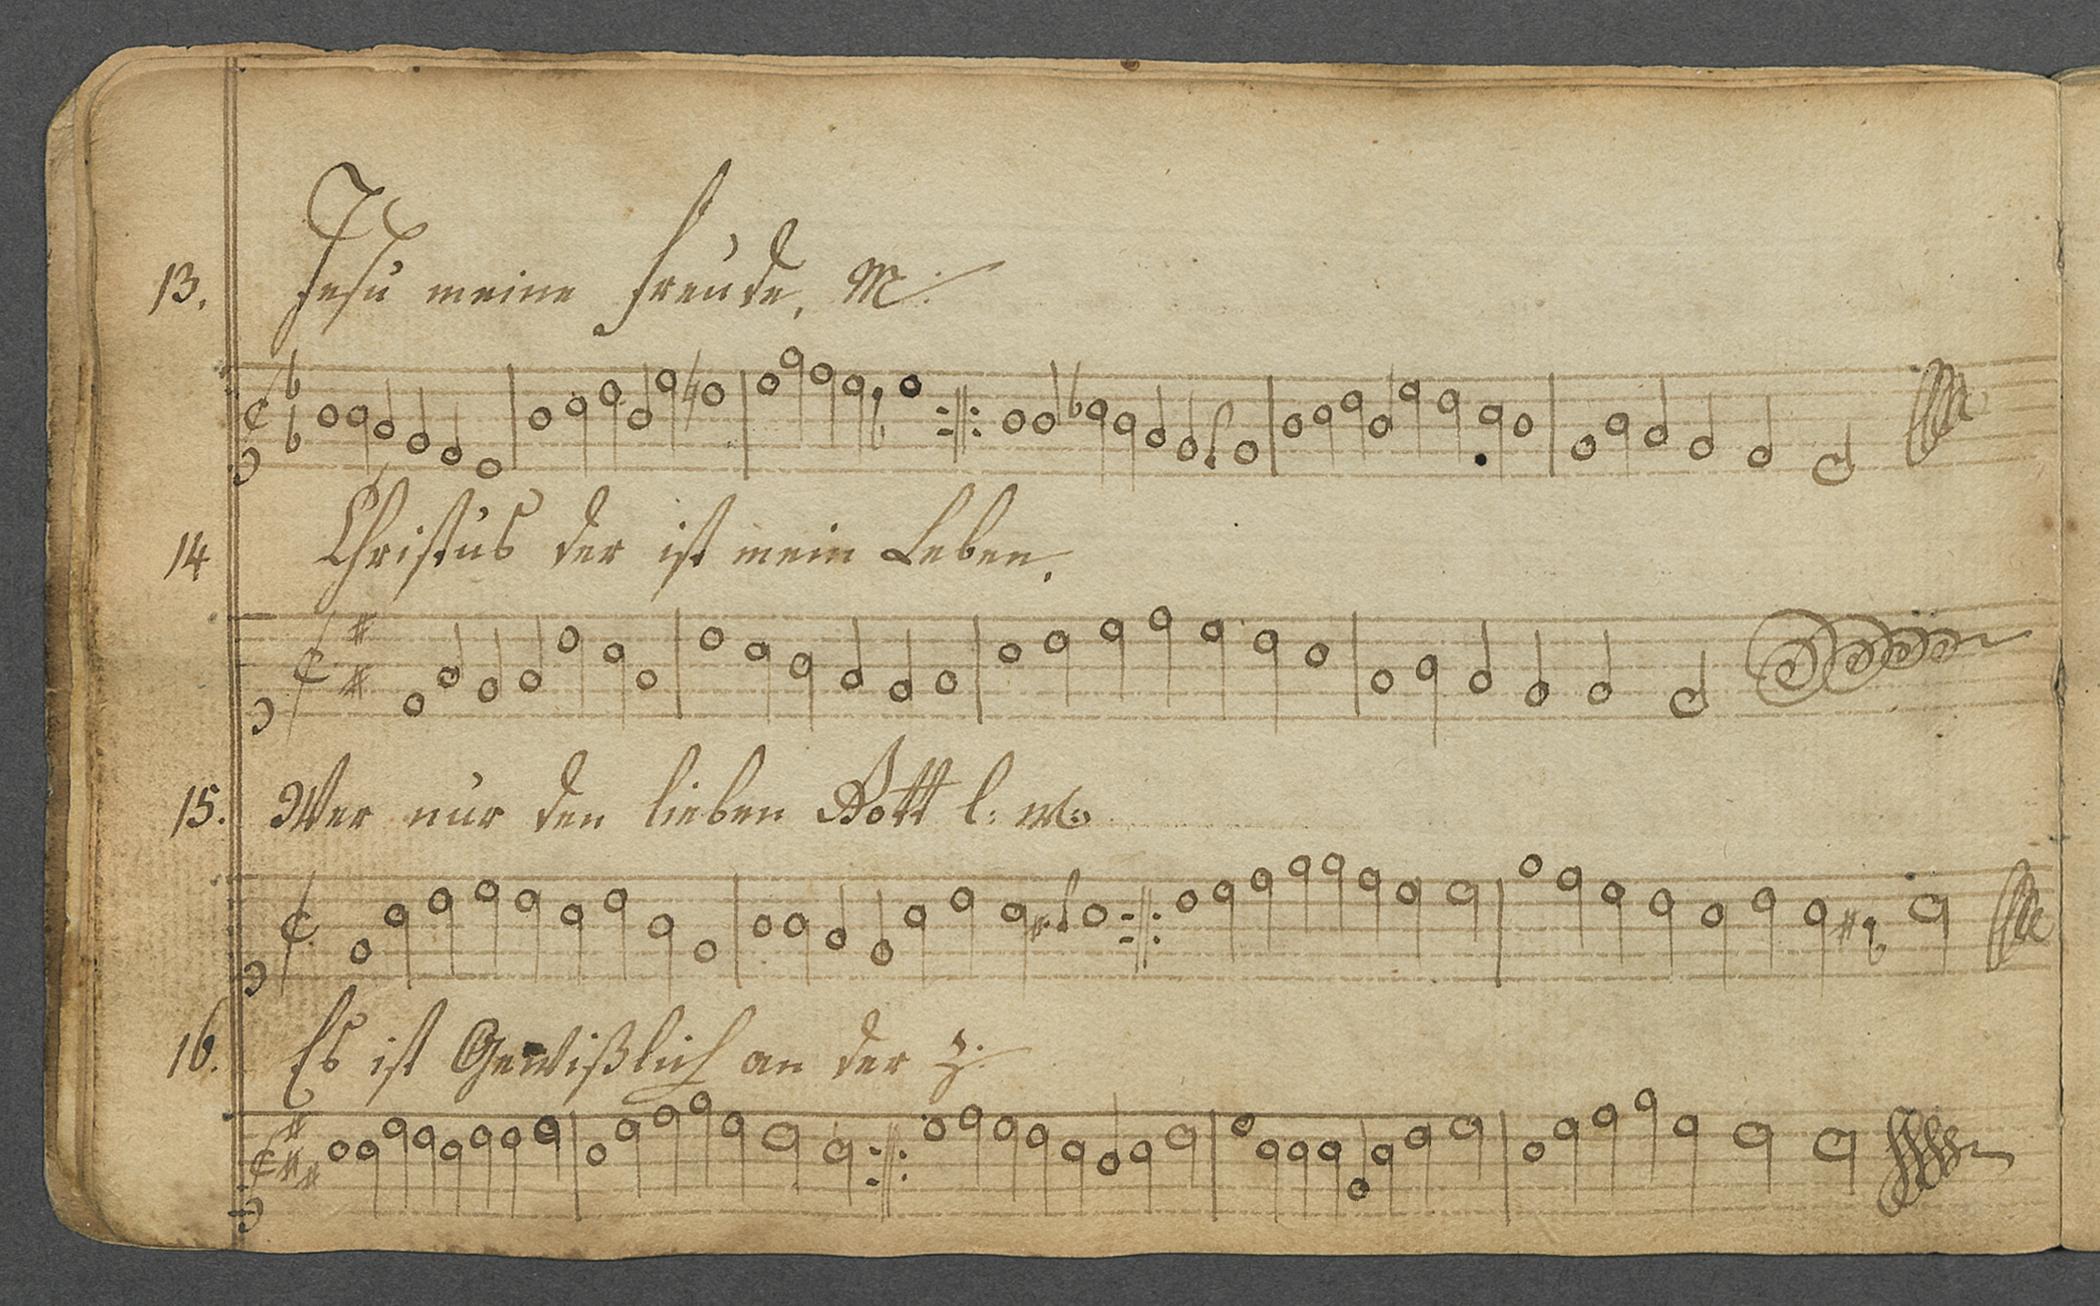 13. Jesu meine Freude, M:
14 Christus der ist mein Leben.
15. Wer nur den lieben Gott l: w:
16. Es ist Gewißlich an der Z: